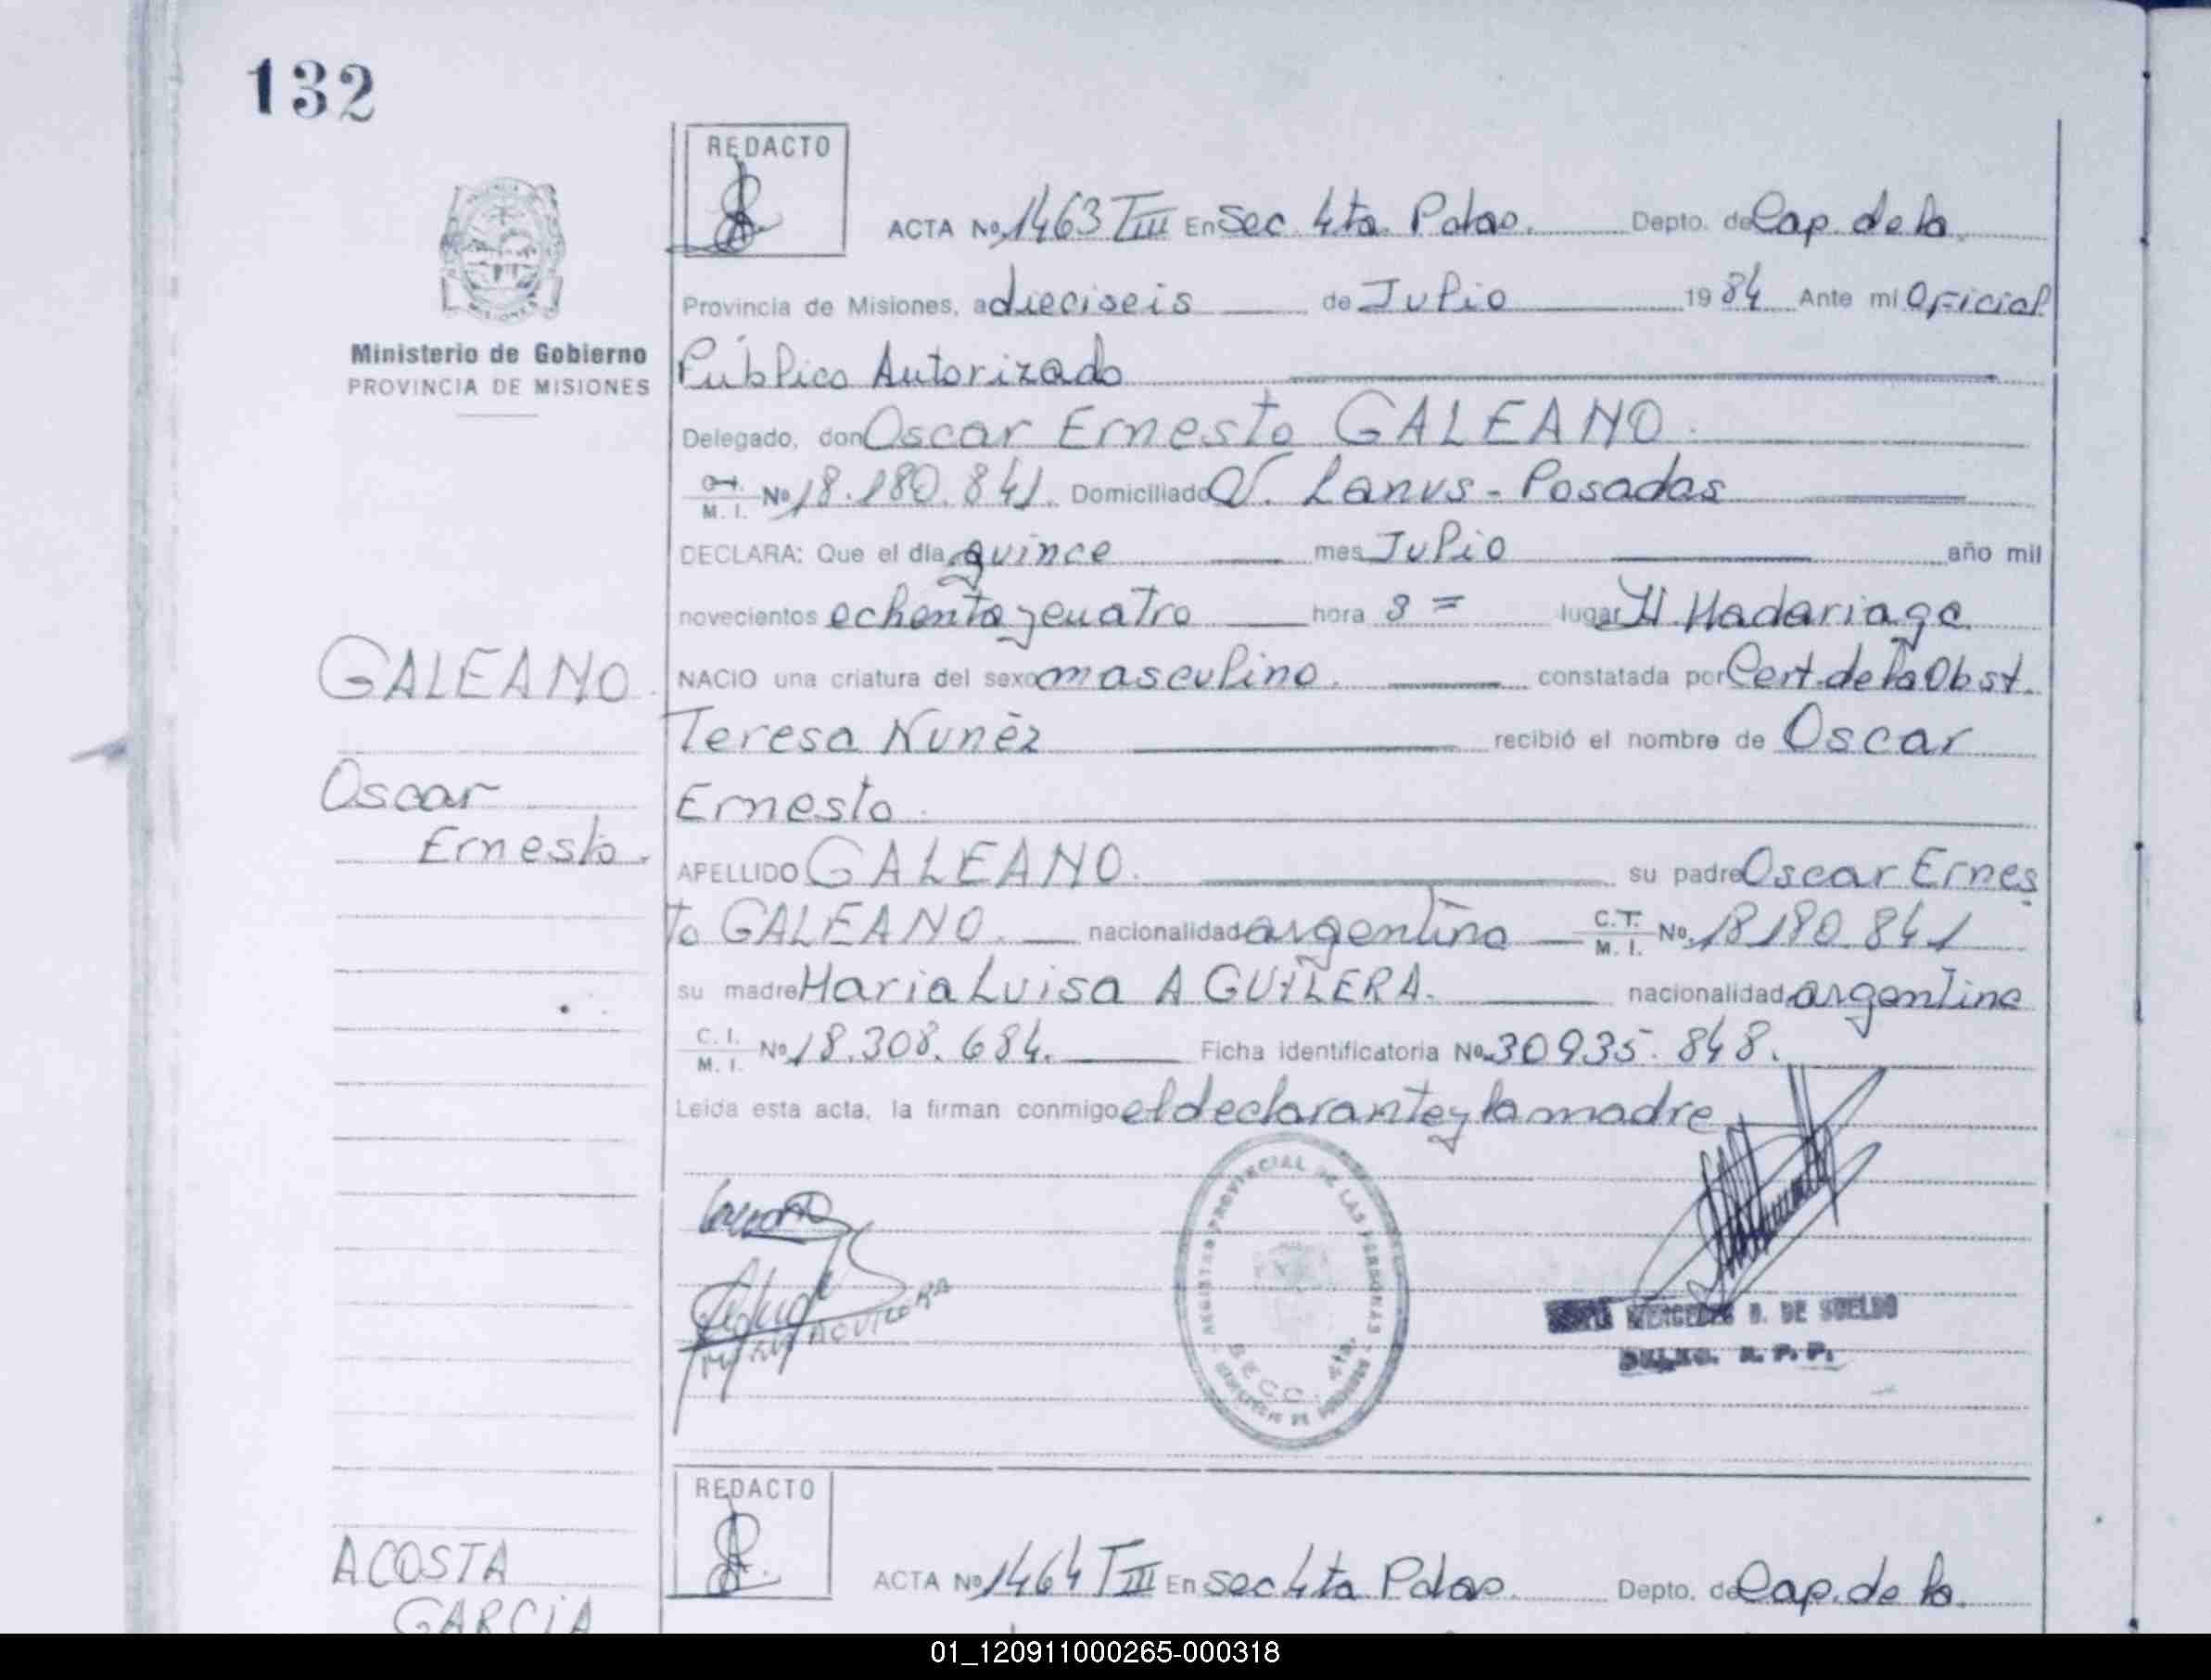 132
REDACTO
ACTA Nº 1463 TIII En Sec. 4ta. Pdas. Depto. de Cap. de la
Provincia de Misiones, a dieciseis de Julio 19 84 Ante mi Oficial
Ministerio de Gobierno
PROVINCIA DE MISIONES
Público Autorizado
Delegado, don Oscar Ernesto GALEANO.
M. I. Nº 18.180.841. Domiciliado V. Lanus - Posadas
DECLARA: Que el día quince mes Julio año mil
novecientos ochenta y cuatro hora 8 = lugar H. Madariaga
GALEANO.
NACIO una criatura del sexo masculino. constatada por Cert. de la Obst.
Teresa Nunèz recibió el nombre de Oscar
Oscar
Ernesto.
Ernesto.
APELLIDO GALEANO. su padre Oscar Ernes
to GALEANO. nacionalidad argentina C.T. M. I. Nº 18180.841
su madre Maria Luisa AGUILERA. nacionalidad argentina
C. I. M. I. Nº 18.308.684. Ficha identificatoria Nº 30935.848.
Leida esta acta, la firman conmigo el declarante y la madre
REGISTRO PROVINCIAL DE LAS PERSONAS
SECC. 4ta.
MERCEDES D. DE SUELDO
R. P. P.
REDACTO
ACOSTA
ACTA Nº 1464 TIII En Sec 4ta Pdas. Depto. de Cap. de la
GARCIA
01_120911000265-000318